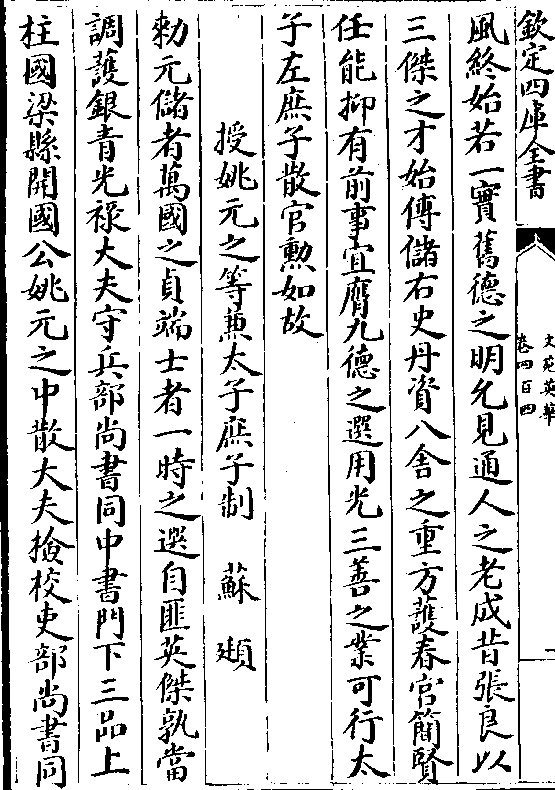 欽定四庫全書
文苑英華
卷四百四
一
風終始若一實舊德之明允見通人之老成昔張良以
三傑之才始傅儲右史丹資八舍之重方護春宮簡賢
任能抑有前事宜膺九德之選用光三善之業可行太
子左庶子散官勲如故
授姚元之等兼太子庶子制 蘇頲
勅元儲者萬國之貞端士者一時之選自匪英傑孰當
調護銀青光祿大夫守兵部尚書同中書門下三品上
柱國梁縣開國公姚元之中散大夫撿校吏部尚書同